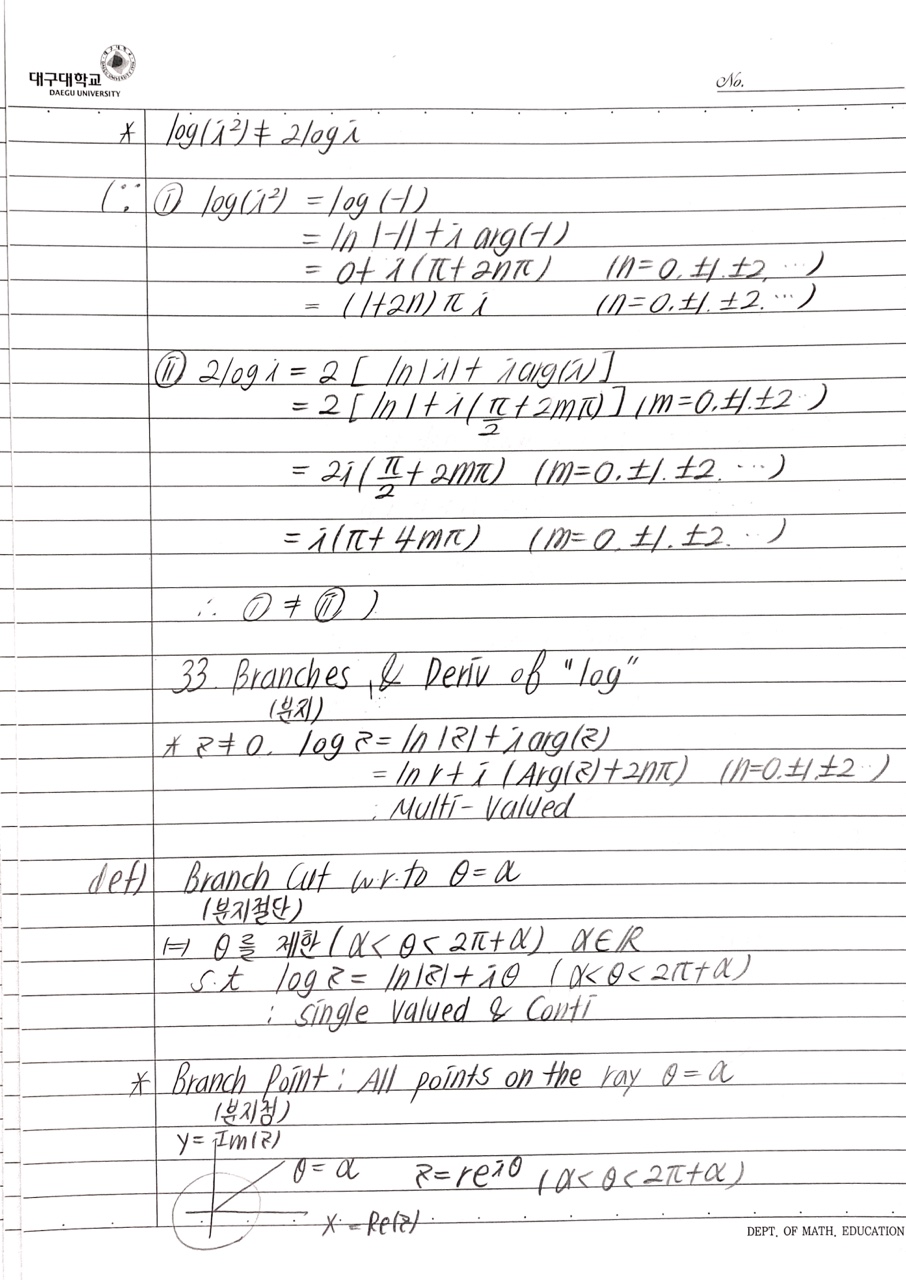 대구대학교
DAEGU UNIVERSITY
No.
* log(i²) ≠ 2log i
(∵ ⓘ log(i²) = log(-1)
= ln|-1| + i arg(-1)
= 0 + i(π+2nπ) (n=0, ±1, ±2, ⋯)
= (1+2n)πi (n=0, ±1, ±2, ⋯)
ⓘⓘ 2log i = 2[ ln|i| + i arg(i)]
= 2[ ln1 + i(π/2 + 2mπ)] (m=0, ±1, ±2 ⋯)
= 2i(π/2 + 2mπ) (m=0, ±1, ±2, ⋯)
= i(π+4mπ) (m=0, ±1, ±2, ⋯)
∴ ⓘ ≠ ⓘⓘ )
33. Branches & Deriv of "log"
(분지)
* z≠0, log z = ln|z| + i arg(z)
= ln r + i (Arg(z)+2nπ) (n=0, ±1, ±2 ⋯)
: Multi-Valued
def) Branch Cut w.r.to θ=α
(분지절단)
⊨ θ를 제한 (α<θ<2π+α) α∈ℝ
s.t log z = ln|z| + iθ (α<θ<2π+α)
: single valued & Conti
* Branch Point : All points on the ray θ=α
(분지점)
y = Im(z)
θ=α z=re^{iθ} (α<θ<2π+α)
x = Re(z)
DEPT. OF MATH. EDUCATION